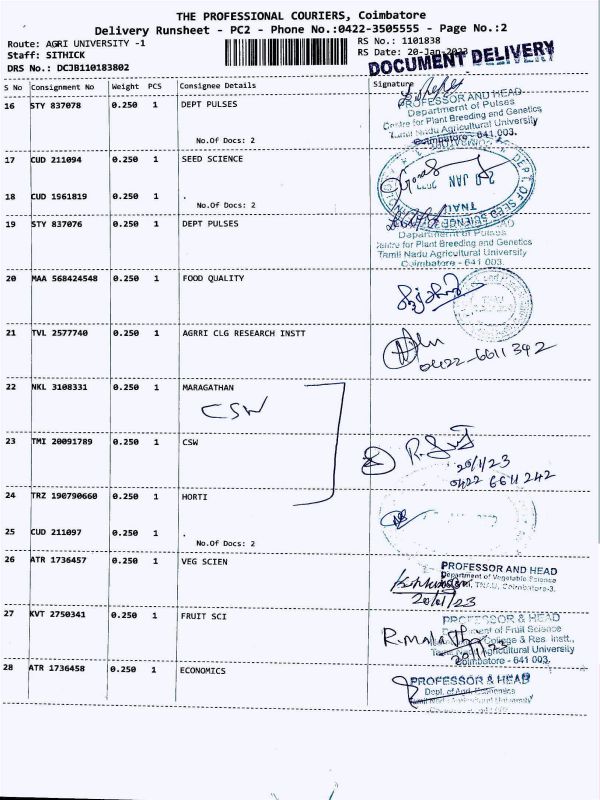 THE PROFESSIONAL COURIERS, Coimbatore
Delivery Runsheet - PC2 - Phone No.:0422-3505555 - Page No.:2
Route: AGRI UNIVERSITY -1
Staff: SITHICK
DRS No.: DCJB110183802
RS No.: 1101838
RS Date: 20-Jan-2023
DOCUMENT DELIVERY
S No Consignment No Weight PCS Consignee Details Signature
16 STY 837078 0.250 1 DEPT PULSES
No.Of Docs: 2
PROFESSOR AND HEAD
Department of Pulses
Centre for Plant Breeding and Genetics
Tamil Nadu Agricultural University
Coimbatore - 641 003.
17 CUD 211094 0.250 1 SEED SCIENCE
18 CUD 1961819 0.250 1 .
No.Of Docs: 2
DEPT. OF SEED SCIENCE
20 JAN 2023
TNAU
19 STY 837076 0.250 1 DEPT PULSES
Department of Pulses
Centre for Plant Breeding and Genetics
Tamil Nadu Agricultural University
Coimbatore - 641 003.
20 MAA 568424548 0.250 1 FOOD QUALITY
TNAU
21 TVL 2577740 0.250 1 AGRRI CLG RESEARCH INSTT
0422-6611342
22 NKL 3108331 0.250 1 MARAGATHAN
CSW
23 TMI 20091789 0.250 1 CSW
20/1/23
0422 6611 242
24 TRZ 190790660 0.250 1 HORTI
25 CUD 211097 0.250 1 .
No.Of Docs: 2
26 ATR 1736457 0.250 1 VEG SCIEN
PROFESSOR AND HEAD
Department of Vegetable Science
TNAU, Coimbatore-3.
20/01/23
27 KVT 2750341 0.250 1 FRUIT SCI
PROFESSOR & HEAD
Department of Fruit Science
College & Res. Instt.,
Tamil Nadu Agricultural University
Coimbatore - 641 003.
28 ATR 1736458 0.250 1 ECONOMICS
PROFESSOR & HEAD
Dept. of Agrl. Economics
Tamil Nadu Agricultural University